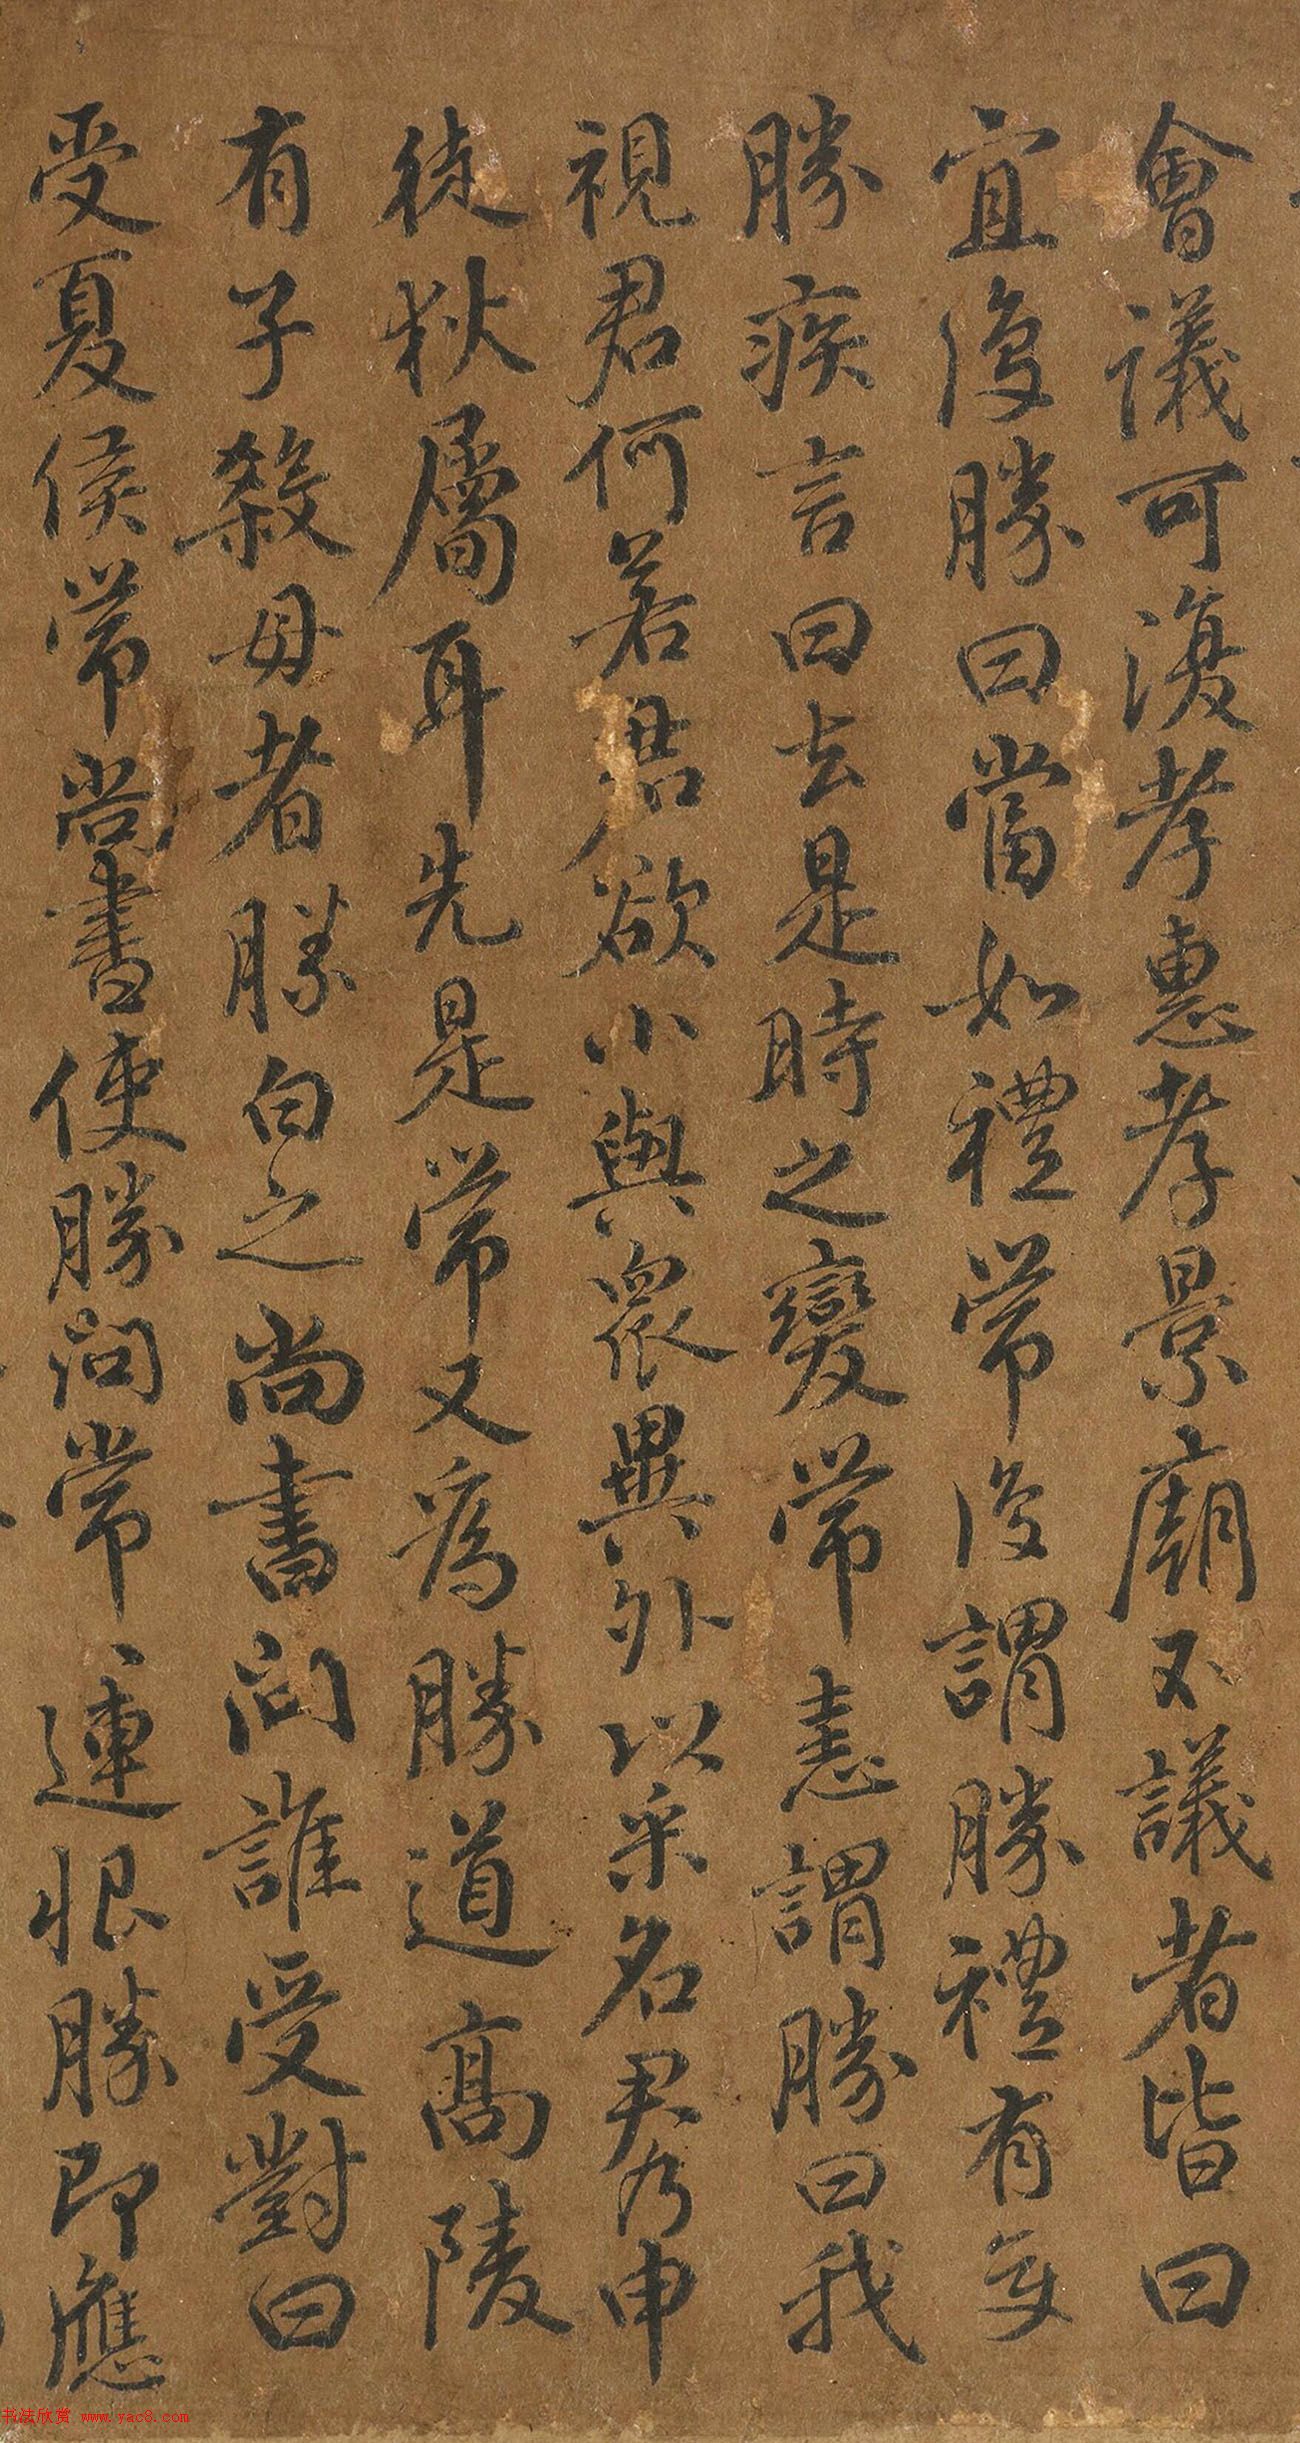 會議可復孝惠孝景廟不議者皆曰
宜復勝曰當如禮常復謂勝禮有變
勝疾言曰去是時之變常恚謂勝曰我
視君何若君欲小與眾異外以采名君乃申
徒狄屬耳先是常又為勝道高陵
有子殺母者勝白之尚書問誰受對曰
受夏侯常尚書使勝問常〻連恨勝即應
书法欣赏 www.yac8.com